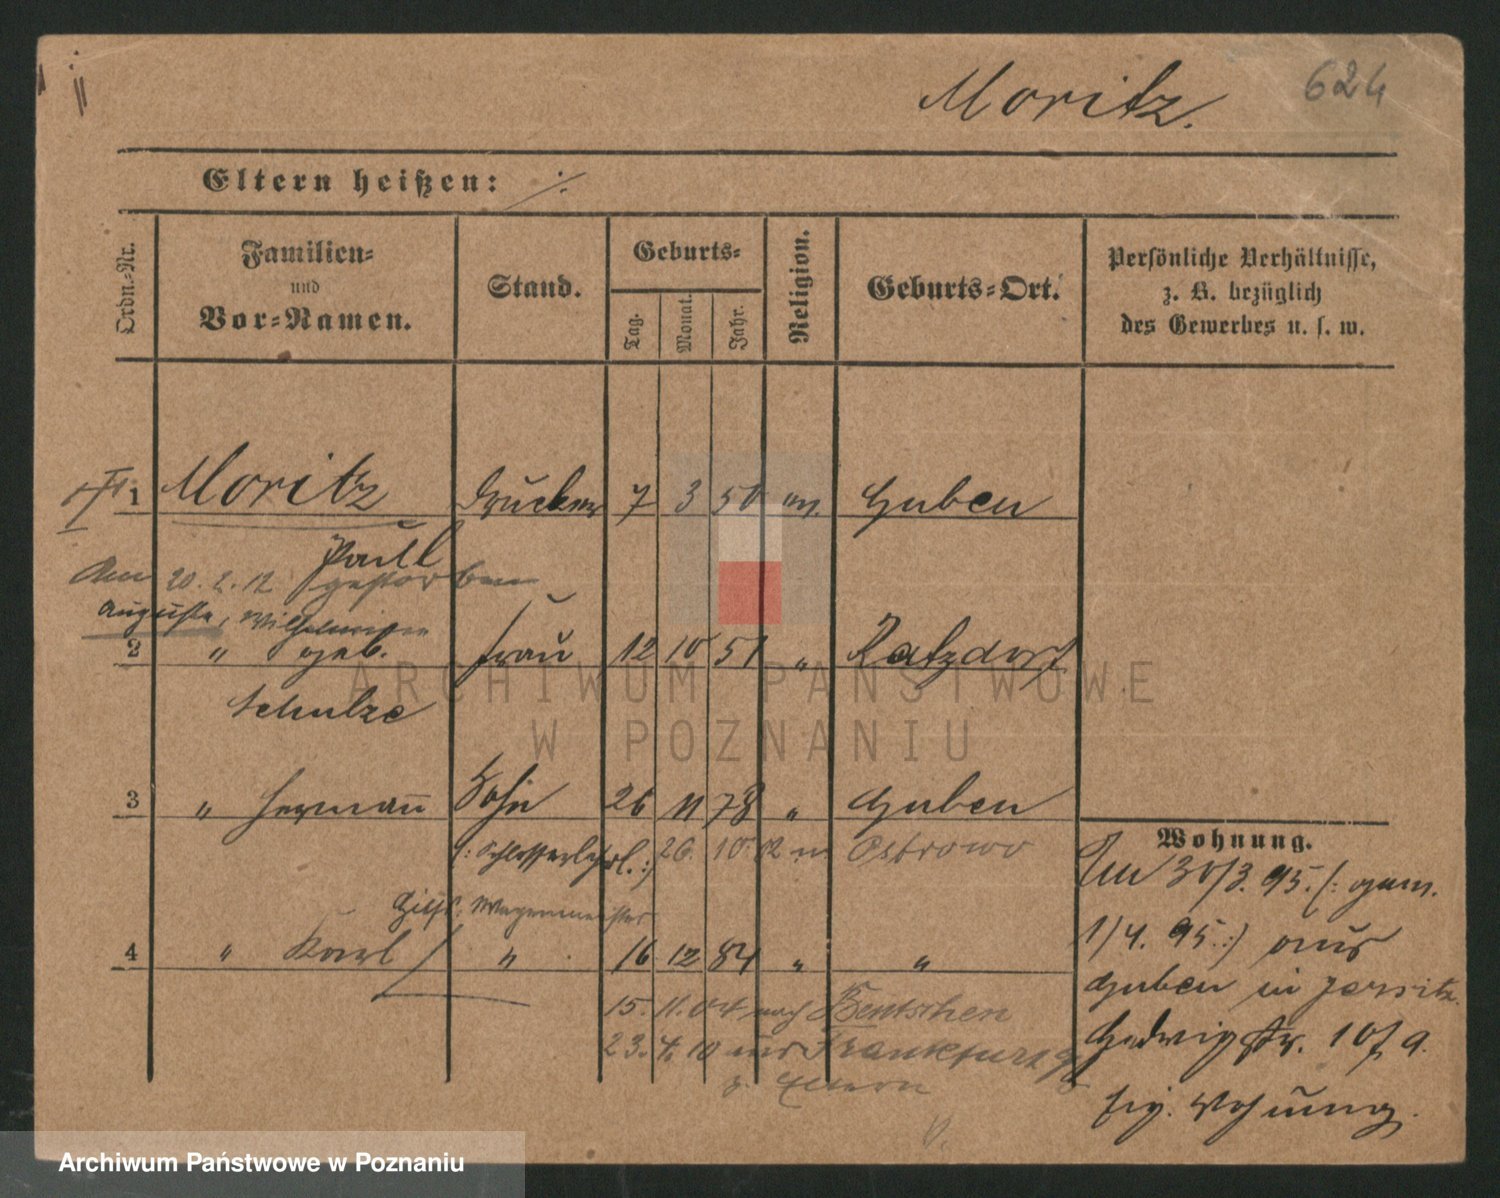 Moritz.
624
Eltern heißen: ·/.
Ordn.-Nr.
Familien-
und
Vor-Namen.
Stand.
Geburts-
Tag.
Monat.
Jahr.
Religion.
Geburts-Ort.
Persönliche Verhältnisse,
z. B. bezüglich
des Gewerbes u. s. w.
1 Moritz Drucker 7 3 50 ev. Guben
Paul
Am 20. 2. 12 gestorben
Auguste, Wilhelmine
2 " geb. Frau 12 10 51 " Ratzdorf
Schulze
3 " Hermann Sohn 26 11 78 " Guben
(: Schlosserlehrl. :) 26. 10. 02 n Ostrowo
Hilfs. Wagenmeister
4 " Karl " 16 12 84 " "
15. 11. 04 nach Bentschen
23. 4. 10 aus Frankfurt
z. Eltern
Wohnung.
Am 30/3. 95. (: gem.
1/4. 95. :) aus
Guben in Jersitz.
Hedwigstr. 10, a.
eig. Wohnung.
ARCHIWUM PAŃSTWOWE
W POZNANIU
Archiwum Państwowe w Poznaniu